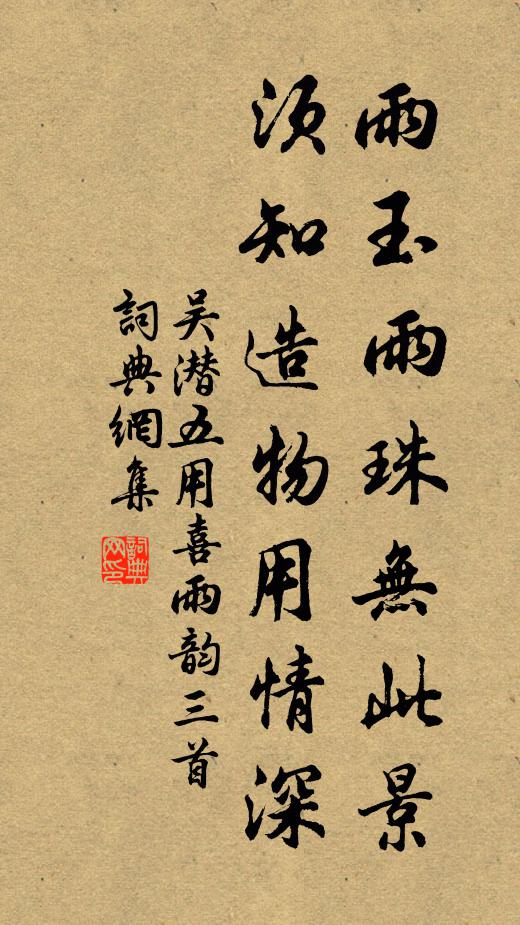 雨玉雨珠無此景
須知造物用情深
吴潜五用喜雨韵三首
詞典網集
詞典网印